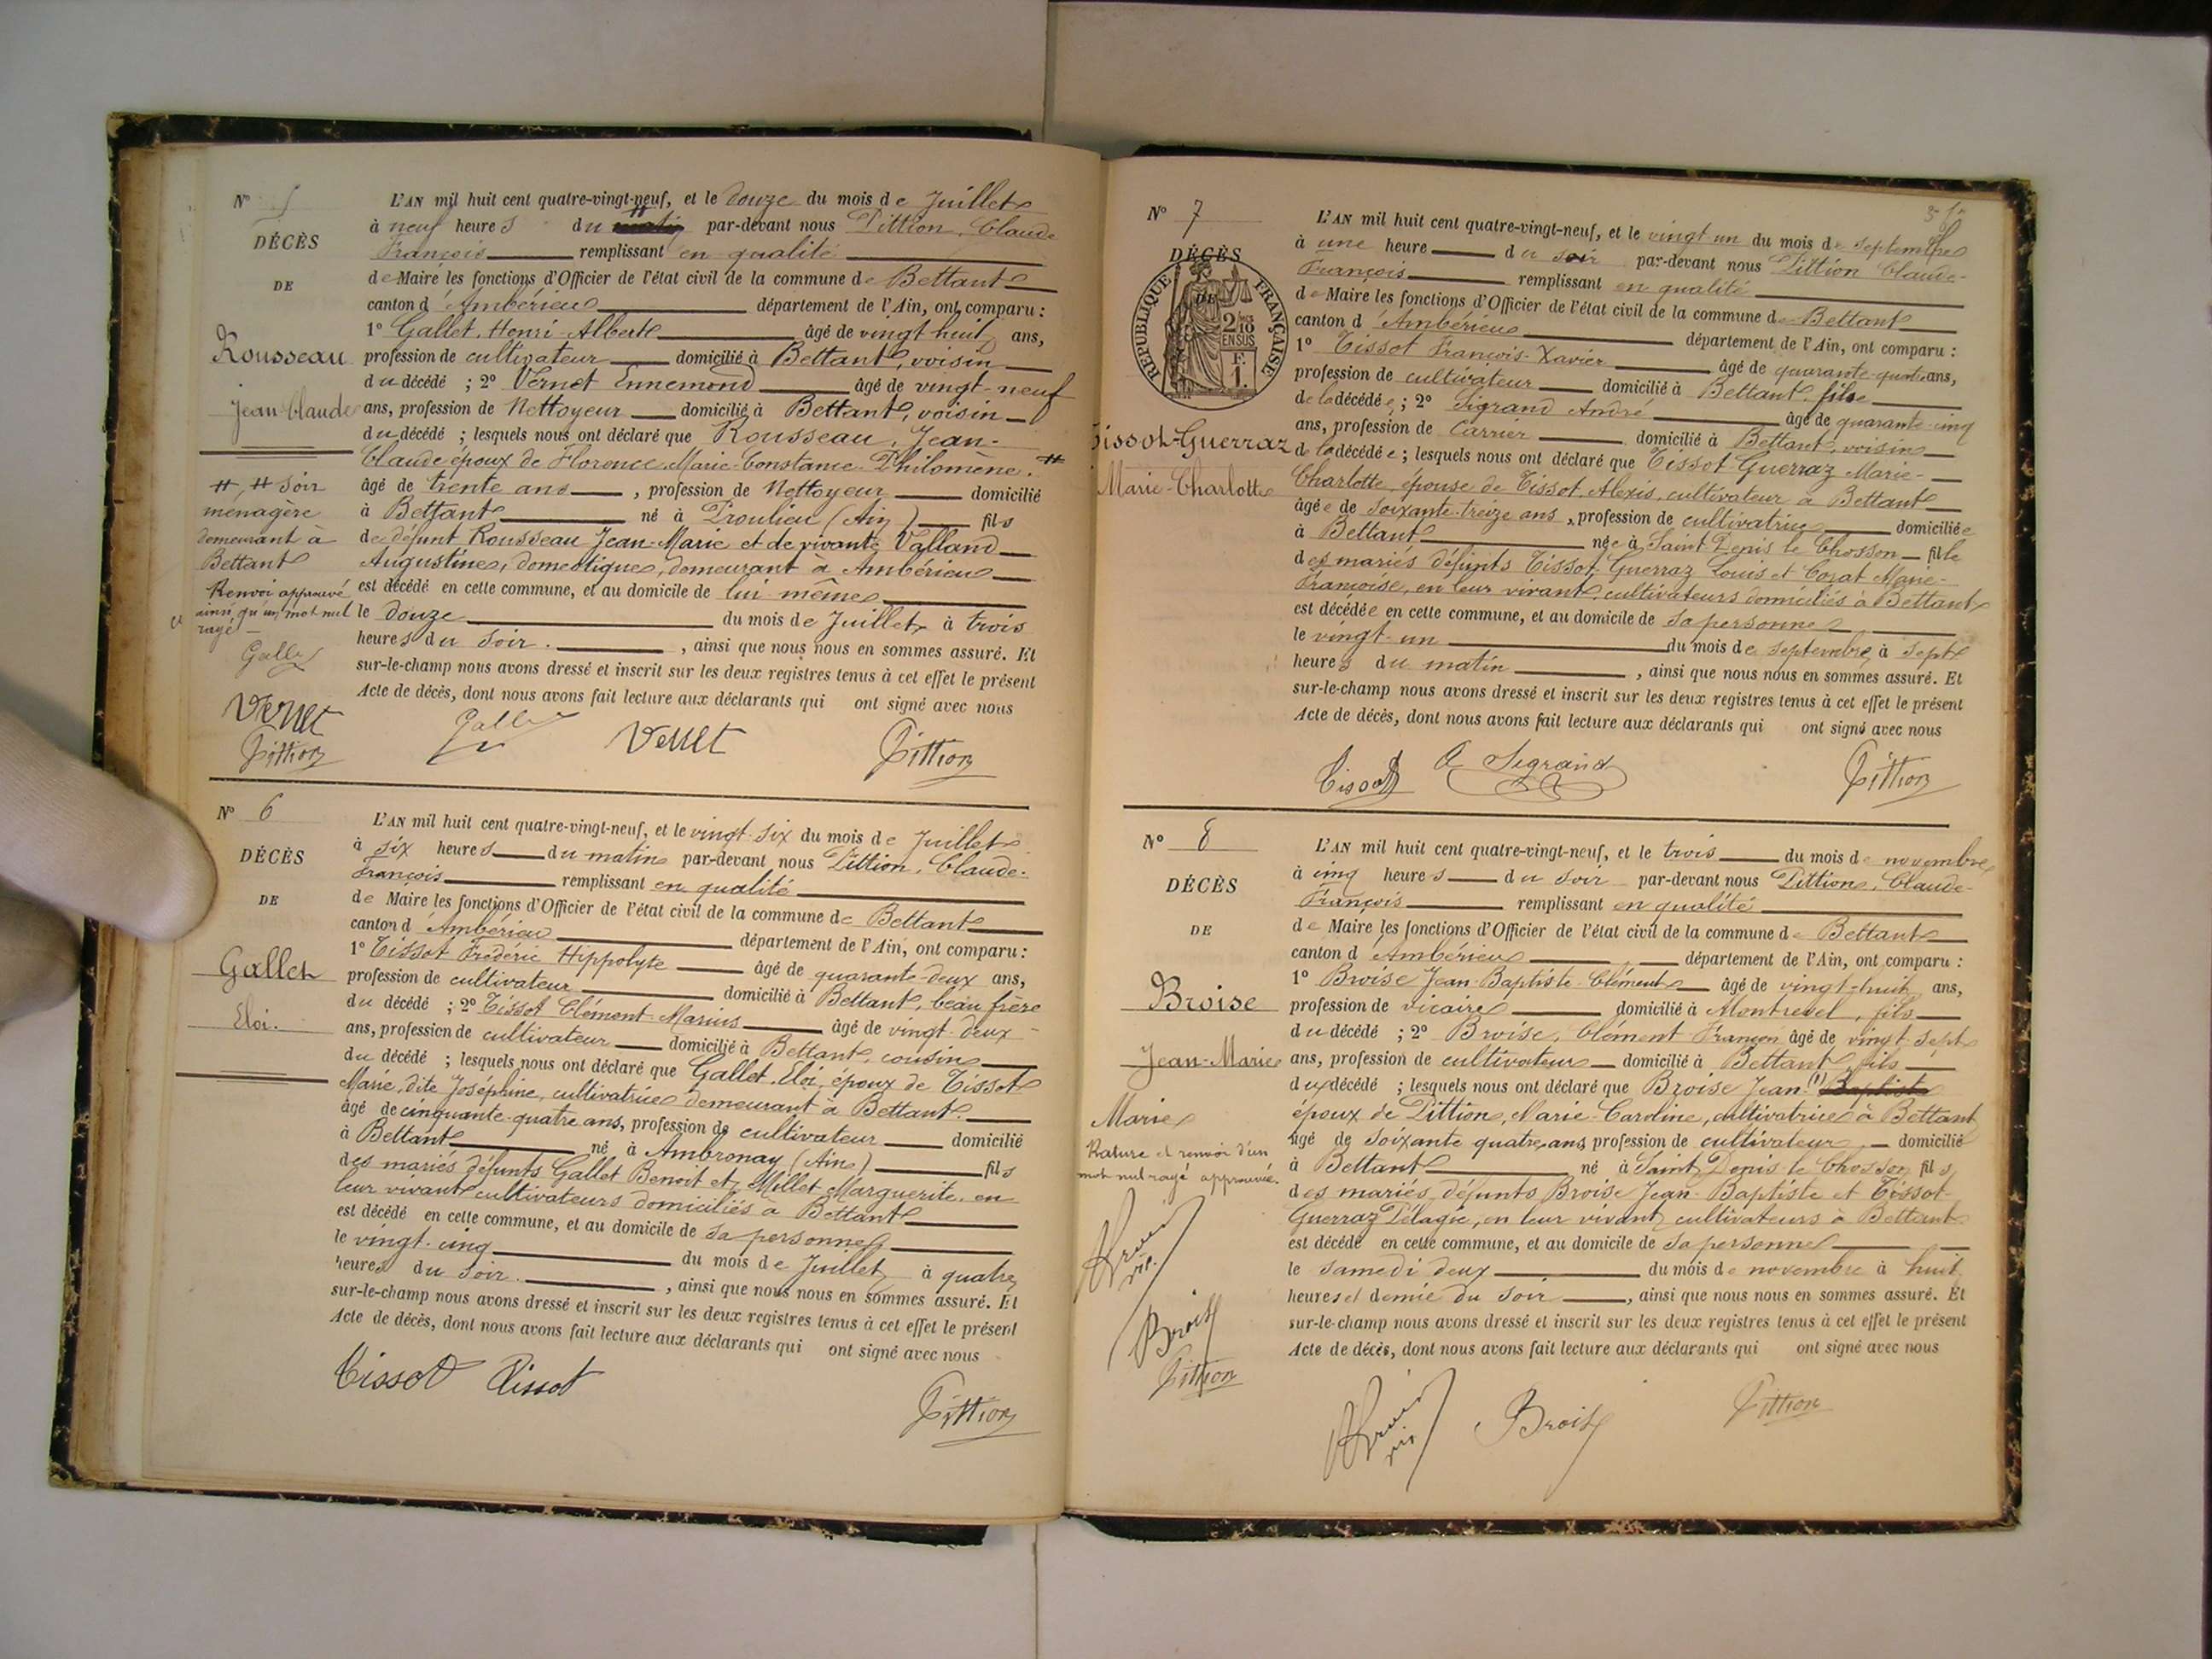 N° 5
DÉCÈS
DE
Rousseau
Jean Claude
# # soir
ménagère
demeurant à
Bettant
Renvoi approuvé
ainsi qu'un mot nul
rayé
Gallet
Vernet
Pittion
L'AN mil huit cent quatre-vingt-neuf, et le douze du mois de Juillet
à neuf heures du matin # par-devant nous Pittion, Claude
François remplissant en qualité
de Maire les fonctions d'Officier de l'état civil de la commune de Bettant
canton d'Ambérieu département de l'Ain, ont comparu :
1° Gallet, Henri-Albert âgé de vingt huit ans,
profession de cultivateur domicilié à Bettant, voisin
du décédé ; 2° Vernet Ennemond âgé de vingt-neuf
ans, profession de Nettoyeur domicilié à Bettant, voisin
du décédé ; lesquels nous ont déclaré que Rousseau, Jean-
Claude époux de Florence Marie-Constance-Philomène. #
âgé de trente ans, profession de Nettoyeur domicilié
à Bettant né à Proulieu (Ain) fils
de défunt Rousseau Jean-Marie et de vivante Valland
Augustine, domestique, demeurant à Ambérieu
est décédé en cette commune, et au domicile de lui même
le douze du mois de Juillet à trois
heures du soir, ainsi que nous nous en sommes assuré. Et
sur-le-champ nous avons dressé et inscrit sur les deux registres tenus à cet effet le présent
Acte de décès, dont nous avons fait lecture aux déclarants qui ont signé avec nous
Gallet Vernet Pittion
N° 6
DÉCÈS
DE
Gallet
Eloi.
L'AN mil huit cent quatre-vingt-neuf, et le vingt-six du mois de Juillet
à six heures du matin par-devant nous Pittion, Claude-
François remplissant en qualité
de Maire les fonctions d'Officier de l'état civil de la commune de Bettant
canton d'Ambérieu département de l'Ain, ont comparu :
1° Tissot Frédéric Hippolyte âgé de quarante-deux ans,
profession de cultivateur domicilié à Bettant, beau frère
du décédé ; 2° Tissot Clément-Marius âgé de vingt-deux
ans, profession de cultivateur domicilié à Bettant, cousin
du décédé ; lesquels nous ont déclaré que Gallet, Eloi, époux de Tissot
Marie, dite Joséphine, cultivatrice demeurant à Bettant.
âgé de cinquante-quatre ans, profession de cultivateur domicilié
à Bettant né à Ambronay (Ain) fils
des mariés défunts Gallet Benoit et Millet Marguerite, en
leur vivant cultivateurs domiciliés à Bettant
est décédé en cette commune, et au domicile de sa personne
le vingt-cinq du mois de Juillet à quatre
heures du soir., ainsi que nous nous en sommes assuré. Et
sur-le-champ nous avons dressé et inscrit sur les deux registres tenus à cet effet le présent
Acte de décès, dont nous avons fait lecture aux déclarants qui ont signé avec nous
Tissot Tissot
Pittion
N° 7
DÉCÈS
DE
RÉPUBLIQUE FRANÇAISE
2/10 EN SUS
F. 1.
Tissot-Guerraz
Marie-Charlotte
L'AN mil huit cent quatre-vingt-neuf, et le vingt un du mois de septembre
à une heure du soir par-devant nous Pittion Claude-
François remplissant en qualité
de Maire les fonctions d'Officier de l'état civil de la commune de Bettant
canton d'Ambérieu département de l'Ain, ont comparu :
1° Tissot François-Xavier âgé de quarante-quatre ans,
profession de cultivateur domicilié à Bettant, fils
de la décédée ; 2° Sigrand André âgé de quarante-cinq
ans, profession de Carrier domicilié à Bettant, voisin
de la décédée ; lesquels nous ont déclaré que Tissot-Guerraz Marie-
Charlotte, épouse de Tissot, Alexis, cultivateur à Bettant
âgée de soixante-treize ans, profession de cultivatrice domiciliée
à Bettant née à Saint Denis le Chosson fille
des mariés défunts Tissot-Guerraz Louis et Cozat Marie-
Françoise, en leur vivant cultivateurs domiciliés à Bettant
est décédée en cette commune, et au domicile de sa personne
le vingt-un du mois de septembre à sept
heures du matin, ainsi que nous nous en sommes assuré. Et
sur-le-champ nous avons dressé et inscrit sur les deux registres tenus à cet effet le présent
Acte de décès, dont nous avons fait lecture aux déclarants qui ont signé avec nous
Tissot A Sigrand Pittion
N° 8
DÉCÈS
DE
Broise
Jean-Marie
Marie
Rature et renvoi d'un
mot nul rayé approuvés.
Broise
Pittion
L'AN mil huit cent quatre-vingt-neuf, et le trois du mois de novembre
à cinq heures du soir par-devant nous Pittion, Claude-
François remplissant en qualité
de Maire les fonctions d'Officier de l'état civil de la commune de Bettant
canton d'Ambérieu département de l'Ain, ont comparu :
1° Broise Jean-Baptiste-Clément âgé de vingt-huit ans,
profession de vicaire domicilié à Montrevel, fils
du décédé ; 2° Broise, Clément François âgé de vingt-sept
ans, profession de cultivateur domicilié à Bettant, fils
du décédé ; lesquels nous ont déclaré que Broise Jean (1) Baptiste
époux de Pittion, Marie-Caroline, cultivatrice à Bettant
âgé de soixante quatre ans, profession de cultivateur domicilié
à Bettant né à Saint Denis le Chosson fils
des mariés défunts Broise Jean-Baptiste et Tissot-
Guerraz Pélagie, en leur vivant cultivateurs à Bettant
est décédé en cette commune, et au domicile de sa personne
le samedi deux du mois de novembre à huit
heures et demie du soir, ainsi que nous nous en sommes assuré. Et
sur-le-champ nous avons dressé et inscrit sur les deux registres tenus à cet effet le présent
Acte de décès, dont nous avons fait lecture aux déclarants qui ont signé avec nous
Broise Pittion